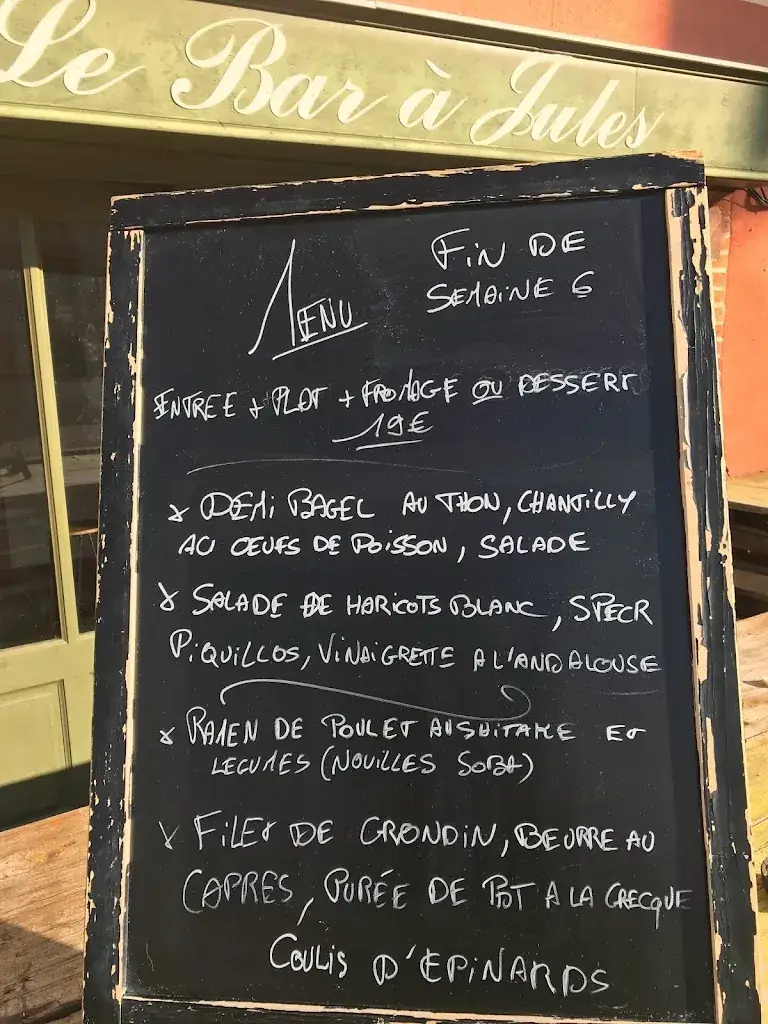 Le Bar à Jules
MENU
FIN DE
SEMAINE 6
ENTREE + PLAT + FROMAGE OU DESSERT
19€
x DEMI BAGEL AU THON, CHANTILLY
AU OEUFS DE POISSON, SALADE
x SALADE DE HARICOTS BLANC, SPECK
PIQUILLOS, VINAIGRETTE A L'ANDALOUSE
x RAMEN DE POULET AU SHITAKE ET
LEGUMES (NOUILLES SOBA)
x FILET DE GRONDIN, BEURRE AU
CAPRES, PURÉE DE PDT A LA GRECQUE
COULIS D'EPINARDS